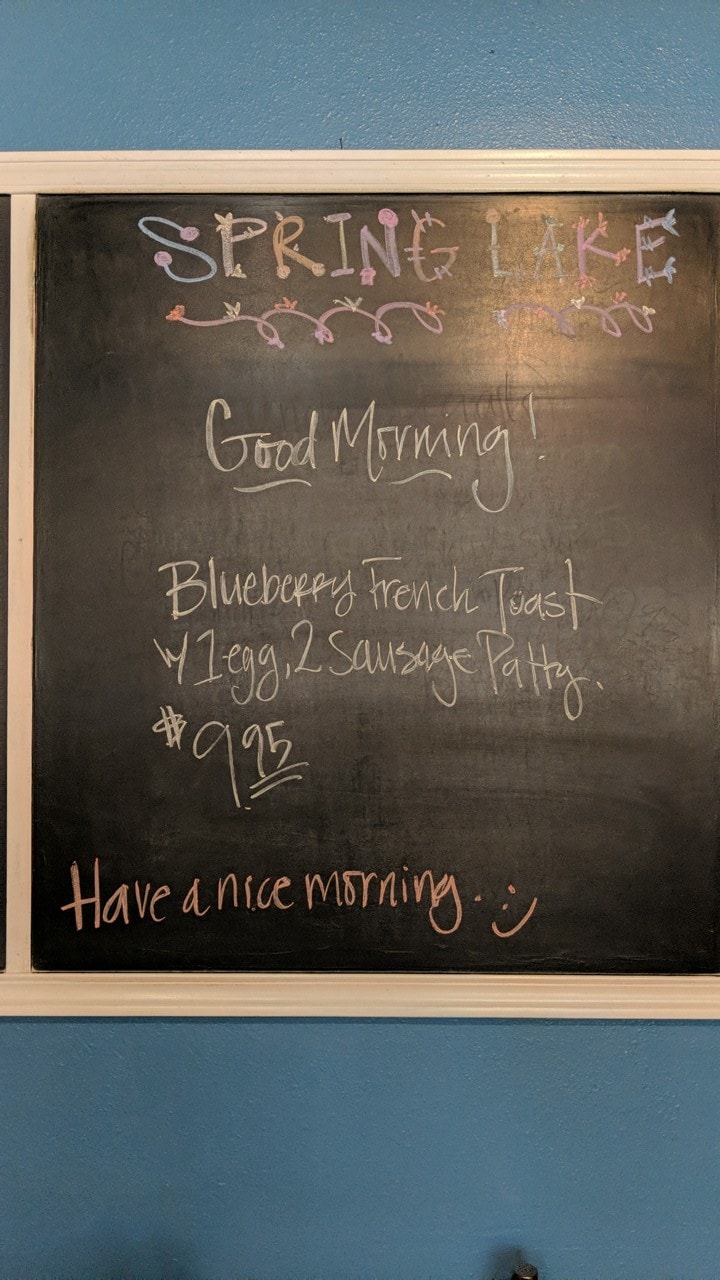 SPRING LAKE
Good Morning!
Blueberry French Toast
w/ 1 egg, 2 Sausage Patty.
$9.95
Have a nice morning. :)